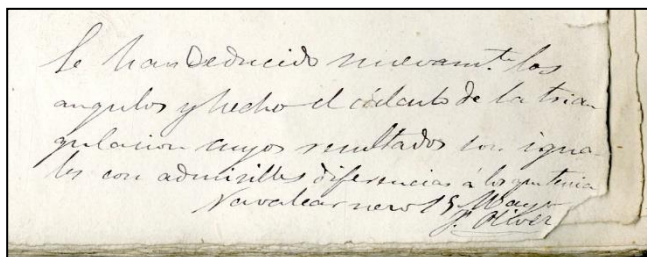 Se han deducido nuevamte los
angulos y hecho el cálculo de la trian
gulacion cuyos resultados son igua-
les con admisibles diferencias á los que tenia
Navalcarnero 15 Mayo
J. Oliver